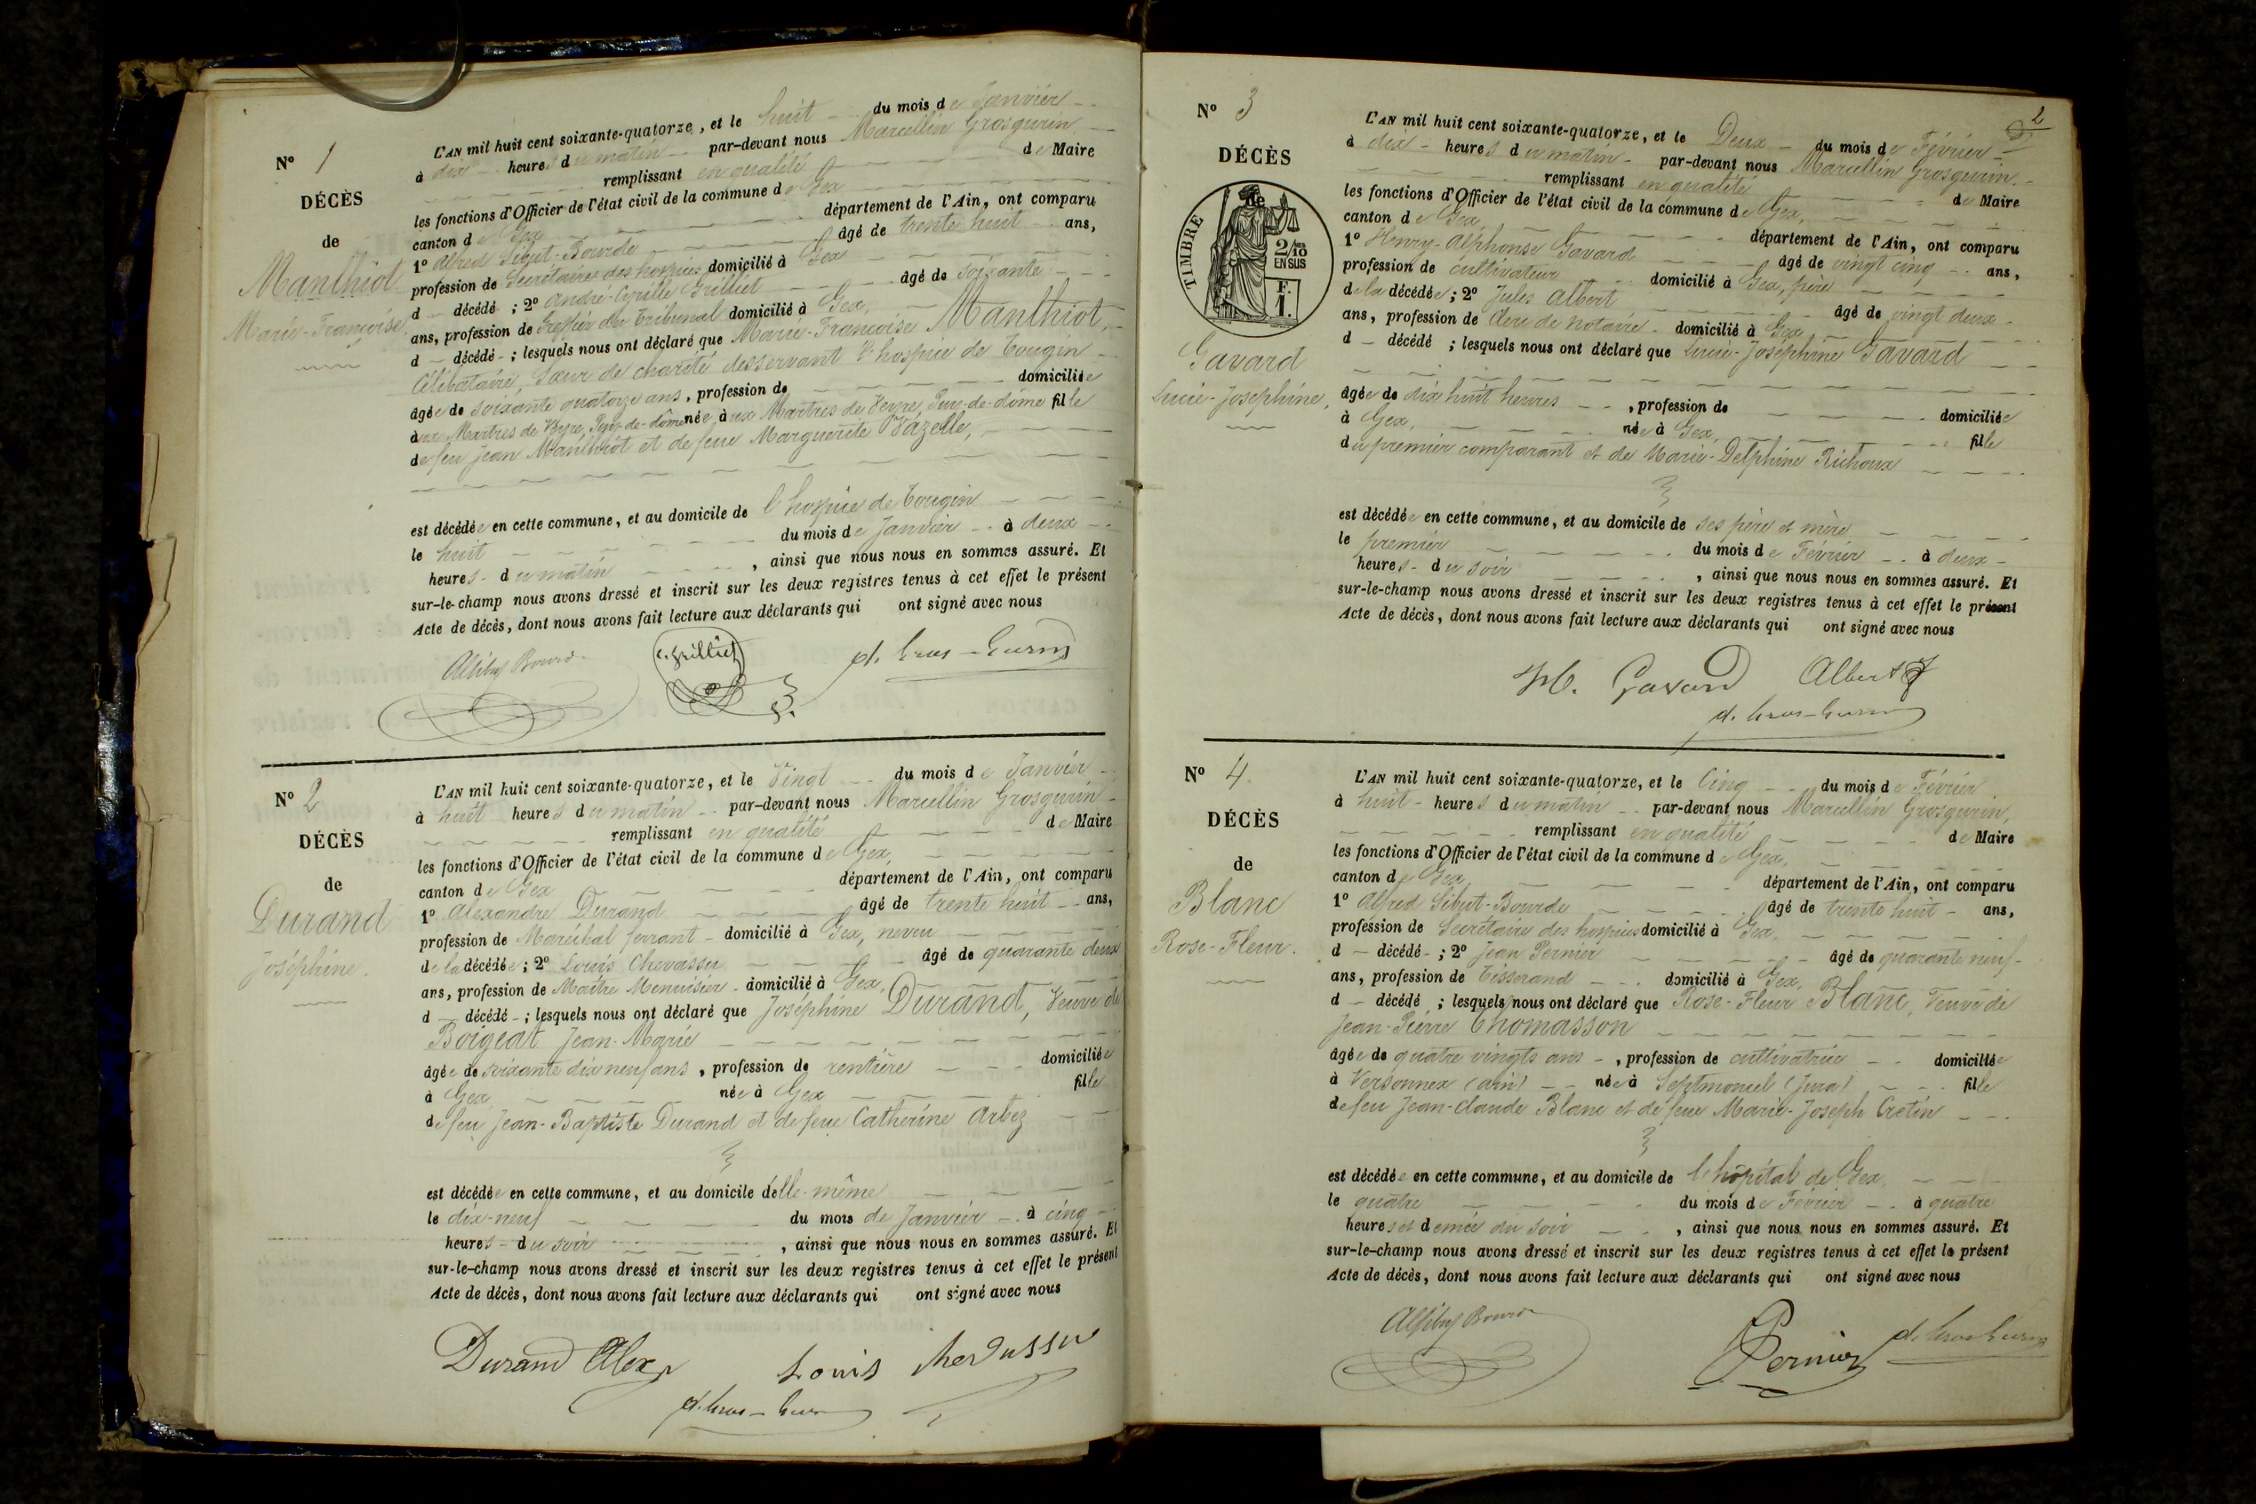 N° 1
DÉCÈS
de
Manthiot
Marie-Françoise.
L'AN mil huit cent soixante-quatorze, et le huit du mois de Janvier
à dix heures du matin par-devant nous Marcellin Grosgurin
remplissant en qualité de Maire
les fonctions d'Officier de l'état civil de la commune de Gex
canton de Gex département de l'Ain, ont comparu
1° Alfred Sibut-Bourde âgé de trente huit ans,
profession de Secrétaire des hospices domicilié à Gex
d décédé ; 2° André-Cyrille Grilliet âgé de soixante
ans, profession de Greffier du Tribunal domicilié à Gex,
d décédé ; lesquels nous ont déclaré que Marie-Françoise Manthiot,
Célibataire, Sœur de charité desservant l'hospice de Tougin
âgée de soixante quatorze ans, profession de domiciliée
aux Martres de Veyre, Puy-de-dôme née aux Martres de Veyre, Puy-de-dôme fille
de feu Jean Manthiot et de feue Marguerite Vazelle,
est décédée en cette commune, et au domicile de l'hospice de Tougin
le huit du mois de Janvier à deux
heures du matin , ainsi que nous nous en sommes assuré. Et
sur-le-champ nous avons dressé et inscrit sur les deux registres tenus à cet effet le présent
Acte de décès, dont nous avons fait lecture aux déclarants qui ont signé avec nous
C. Grilliet
N° 2
DÉCÈS
de
Durand
Joséphine.
L'AN mil huit cent soixante-quatorze, et le Vingt du mois de Janvier
à huit heures du matin par-devant nous Marcellin Grosgurin
remplissant en qualité de Maire
les fonctions d'Officier de l'état civil de la commune de Gex,
canton de Gex département de l'Ain, ont comparu
1° Alexandre Durand âgé de trente huit ans,
profession de Maréchal ferrant domicilié à Gex, neveu
de la décédée ; 2° Louis Chevassu âgé de quarante deux
ans, profession de Maître Menuisier domicilié à Gex,
d décédé ; lesquels nous ont déclaré que Joséphine Durand, Veuve de
Boigeat Jean-Marie
âgée de soixante dix neuf ans, profession de rentière domiciliée
à Gex née à Gex fille
de feu Jean-Baptiste Durand et de feue Catherine Arbez
est décédée en cette commune, et au domicile d'elle-même
le dix-neuf du mois de Janvier à cinq
heures du soir , ainsi que nous nous en sommes assuré. Et
sur-le-champ nous avons dressé et inscrit sur les deux registres tenus à cet effet le présent
Acte de décès, dont nous avons fait lecture aux déclarants qui ont signé avec nous
Durand Alex
Louis Chevassu
2
N° 3
DÉCÈS
de
TIMBRE
2/10
EN SUS
F.
1.
Gavard
Lucie-Joséphine,
L'AN mil huit cent soixante-quatorze, et le Deux du mois de Février
à dix heures du matin par-devant nous Marcellin Grosgurin
remplissant en qualité de Maire
les fonctions d'Officier de l'état civil de la commune de Gex,
canton de Gex, département de l'Ain, ont comparu
1° Henry-Alphonse Gavard âgé de vingt cinq ans,
profession de cultivateur domicilié à Gex, père
de la décédée ; 2° Jules Albert âgé de vingt deux
ans, profession de Clerc de notaire domicilié à Gex
d décédé ; lesquels nous ont déclaré que Lucie-Joséphine Gavard
âgée de dix huit heures , profession de domiciliée
à Gex, née à Gex, fille
du premier comparant et de Marie-Delphine Richoux
est décédée en cette commune, et au domicile de ses père et mère
le premier du mois de Février à deux
heures du soir , ainsi que nous nous en sommes assuré. Et
sur-le-champ nous avons dressé et inscrit sur les deux registres tenus à cet effet le présent
Acte de décès, dont nous avons fait lecture aux déclarants qui ont signé avec nous
H. Gavard Albert J
N° 4.
DÉCÈS
de
Blanc
Rose-Fleur.
L'AN mil huit cent soixante-quatorze, et le Cinq du mois de Février
à huit heures du matin par-devant nous Marcellin Grosgurin,
remplissant en qualité de Maire
les fonctions d'Officier de l'état civil de la commune de Gex,
canton de Gex département de l'Ain, ont comparu
1° Alfred Sibut-Bourde âgé de trente huit ans,
profession de Secrétaire des hospices domicilié à Gex,
d décédé ; 2° Jean Pernier âgé de quarante neuf
ans, profession de Tisserand domicilié à Gex,
d décédé ; lesquels nous ont déclaré que Rose-Fleur Blanc, Veuve de
Jean-Pierre Thomasson
âgée de quatre vingts ans , profession de cultivatrice domiciliée
à Versonnex (ain) née à Septmoncel (Jura) fille
de feu Jean-Claude Blanc et de feue Marie-Joseph Cretin
est décédée en cette commune, et au domicile de l'hôpital de Gex
le quatre du mois de Février à quatre
heures et demie du soir , ainsi que nous nous en sommes assuré. Et
sur-le-champ nous avons dressé et inscrit sur les deux registres tenus à cet effet le présent
Acte de décès, dont nous avons fait lecture aux déclarants qui ont signé avec nous
Pernier